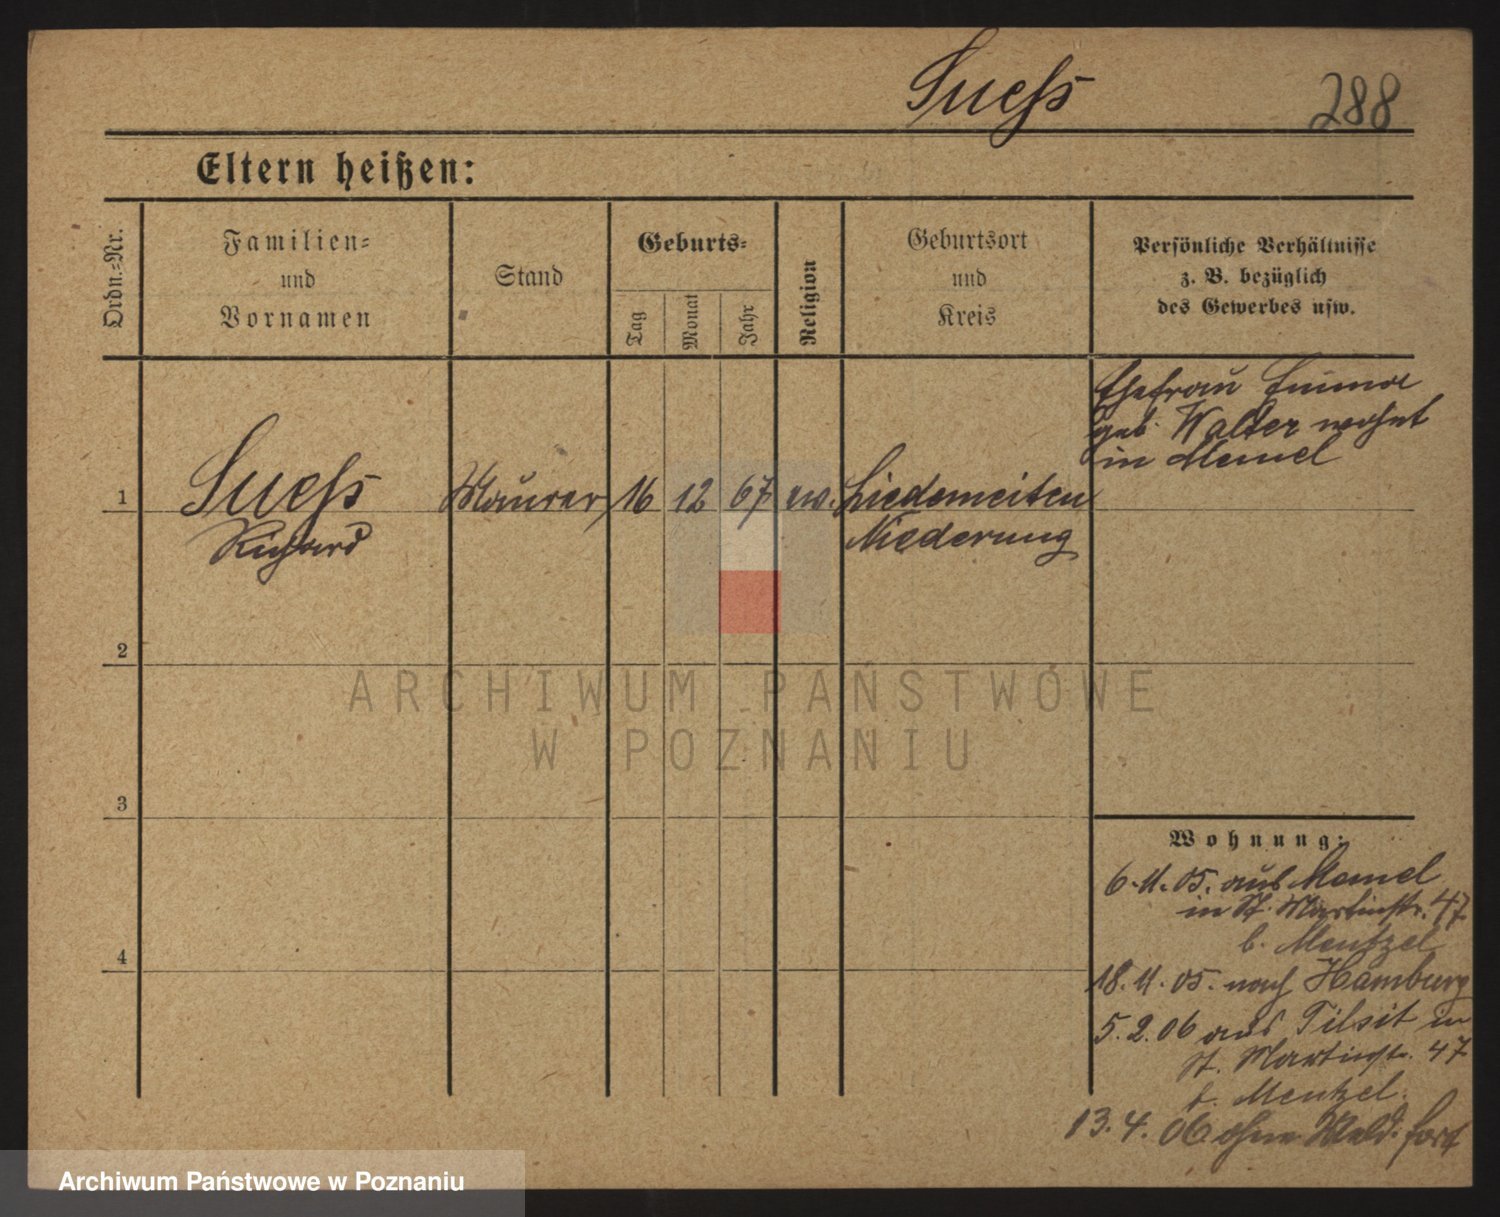 Suess
288
Eltern heißen:
Ordn.-Nr.
Familien-
und
Vornamen
Stand
Geburts-
Tag
Monat
Jahr
Religion
Geburtsort
und
Kreis
Persönliche Verhältnisse
z. B. bezüglich
des Gewerbes usw.
Ehefrau Emma
geb. Walter wohnt
in Memel
1
Suess
Richard
Maurer
16
12
67
ev.
Niederung
2
3
4
Wohnung:
6.11.05. aus Memel
in St. Martinstr. 47
b. Mentzel
18.11.05. nach Hamburg
5.2.06 aus Tilsit in
St. Martinstr. 47
b. Mentzel.
13.4.06 ohne Meld. fort
ARCHIWUM PAŃSTWOWE
W POZNANIU
Archiwum Państwowe w Poznaniu